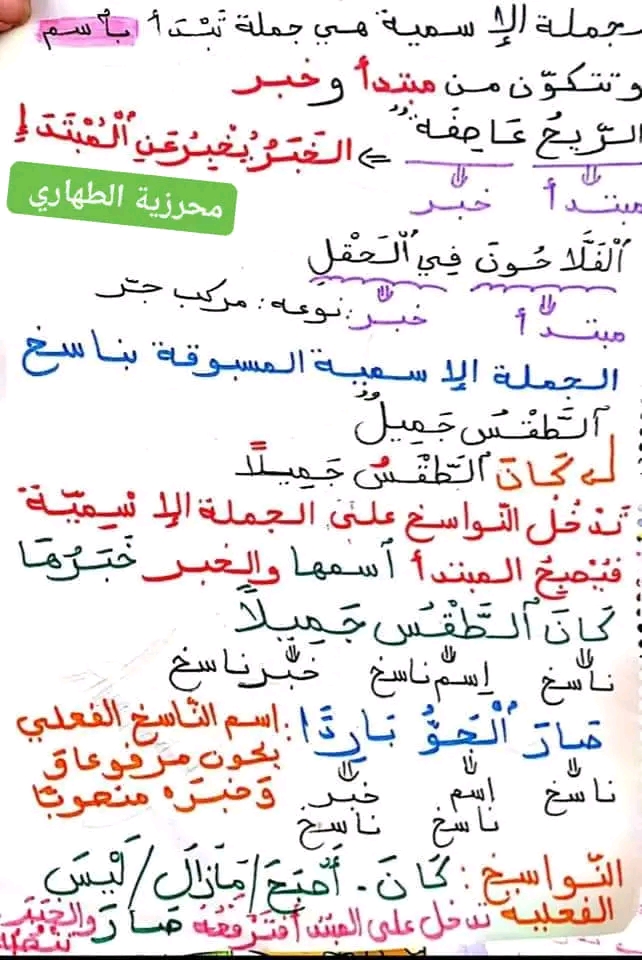 جملة الإسمية هي جملة تَبْدَأ بِاسم
وتتكوّن من مبتدأ وخبر
الرِّيحُ عَاصِفَةٌ ⇐ الخَبَرُ يُخْبِرُ عَنِ الْمُبْتَدَإ
مبتدأ خبر
محرزية الطهاري
اَلْفَلَّاحُونَ فِي اْلحَقْلِ
مبتدأ خبر: نوعه: مركب جرّ
الجملة الإسمية المسبوقة بناسخ
اَلطَّقْسُ جَمِيلٌ
كَانَ اَلطَّقْسُ جَمِيلًا
تَدْخُلُ النّواسخ على الجملة الإسْمِيّة
فَيُصْبِحُ المبتدأ اسمها والخبر خَبَرُهَا
كَانَ اَلطَّقْسُ جَمِيلاً
ناسخ إسم ناسخ خبر ناسخ
صَارَ اْلجَوُّ بَارِدًا: إسم النّاسخ الفعلي
يكون مرفوعا وَ
وَخبَرَه منصوبًا
ناسخ إسم ناسخ خبر ناسخ
النّواسخ الفعلية: كَانَ. أَصْبَحَ/مَازَالَ/لَيْسَ
صَارَ
تدخل على المبتدأ فترفعُهُ والخَبَر